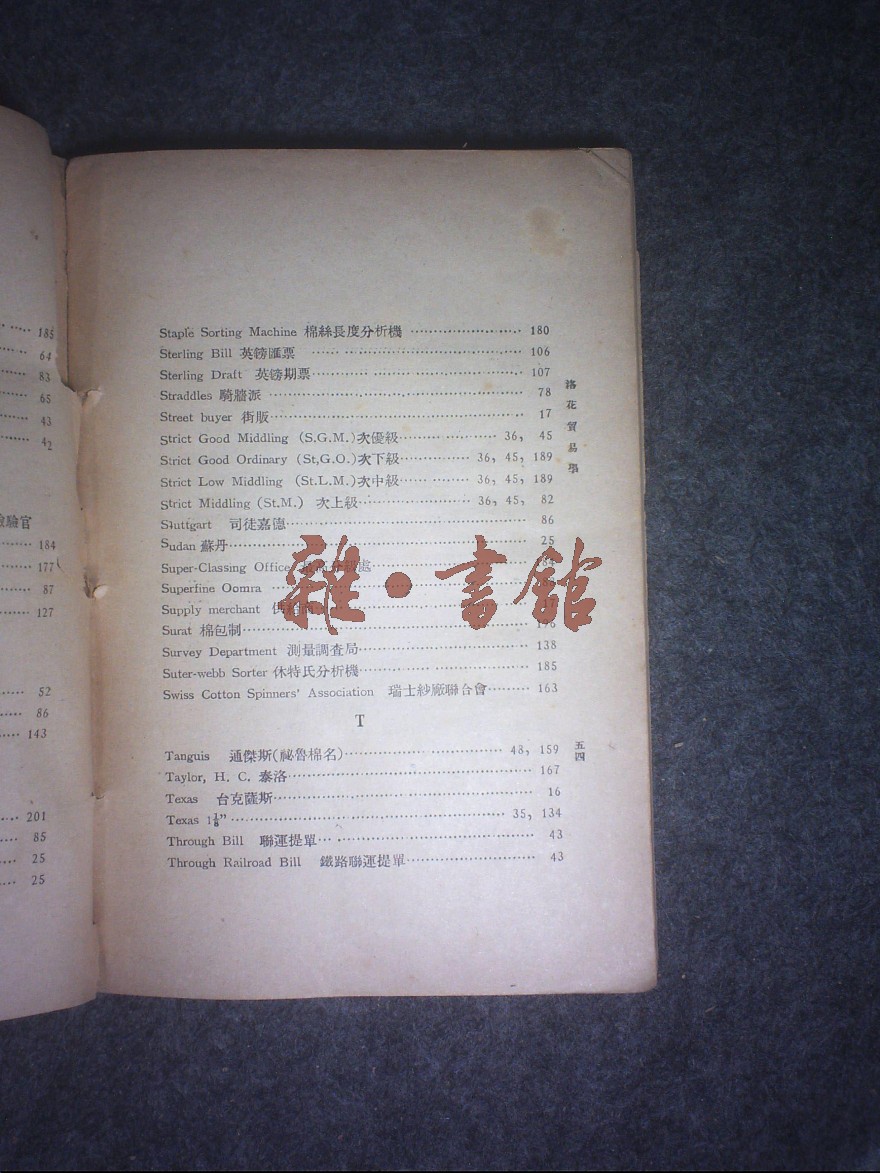 185
64
83
65
43
42
驗官
184
177
87
127
52
86
143
201
85
25
25
Staple Sorting Machine 棉絲長度分析機 180
Sterling Bill 英鎊匯票 106
Sterling Draft 英鎊期票 107
Straddles 騎牆派 78
Street buyer 街販 17
Strict Good Middling (S.G.M.)次優級 36, 45
Strict Good Ordinary (St,G.O.)次下級 36, 45, 189
Strict Low Middling (St.L.M.)次中級 36, 45, 189
Strict Middling (St.M.) 次上級 36, 45, 82
Stuttgart 司徒嘉德 86
Sudan 蘇丹 25
Super-Classing Office 處 184
Superfine Oomra
Supply merchant 供給商
Surat 棉包制
Survey Department 測量調查局 138
Suter-webb Sorter 休特氏分析機 185
Swiss Cotton Spinners' Association 瑞士紗廠聯合會 163
T
Tanguis 通傑斯(祕魯棉名) 48, 159
Taylor, H. C. 泰洛 167
Texas 台克薩斯 16
Texas 1⅛" 35, 134
Through Bill 聯運提單 43
Through Railroad Bill 鐵路聯運提單 43
花貿易學
五四
雜•書館